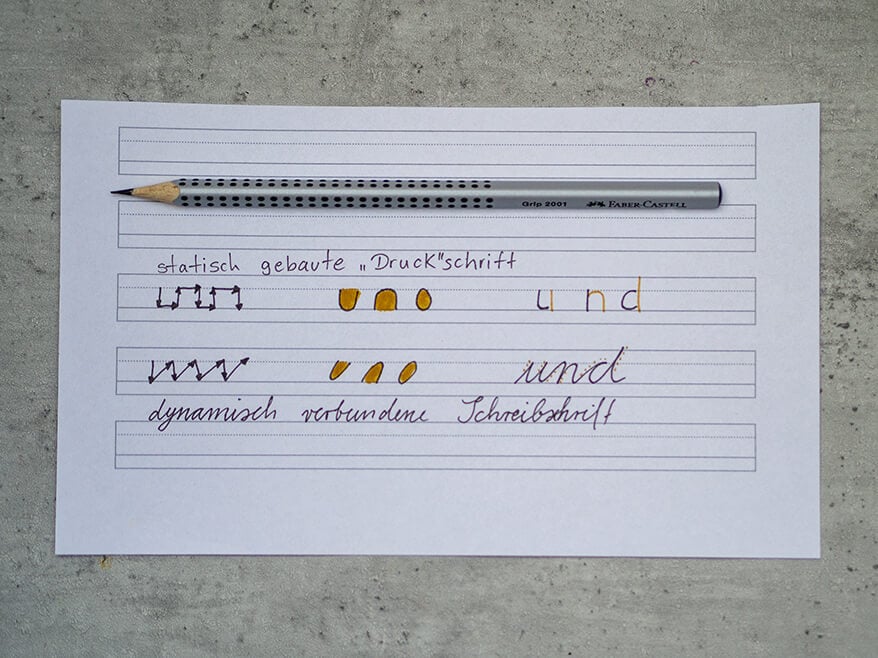 Grip 2001 FABER-CASTELL
statisch gebaute „Druck"schrift
u n d
und
dynamisch verbundene Schreibschrift